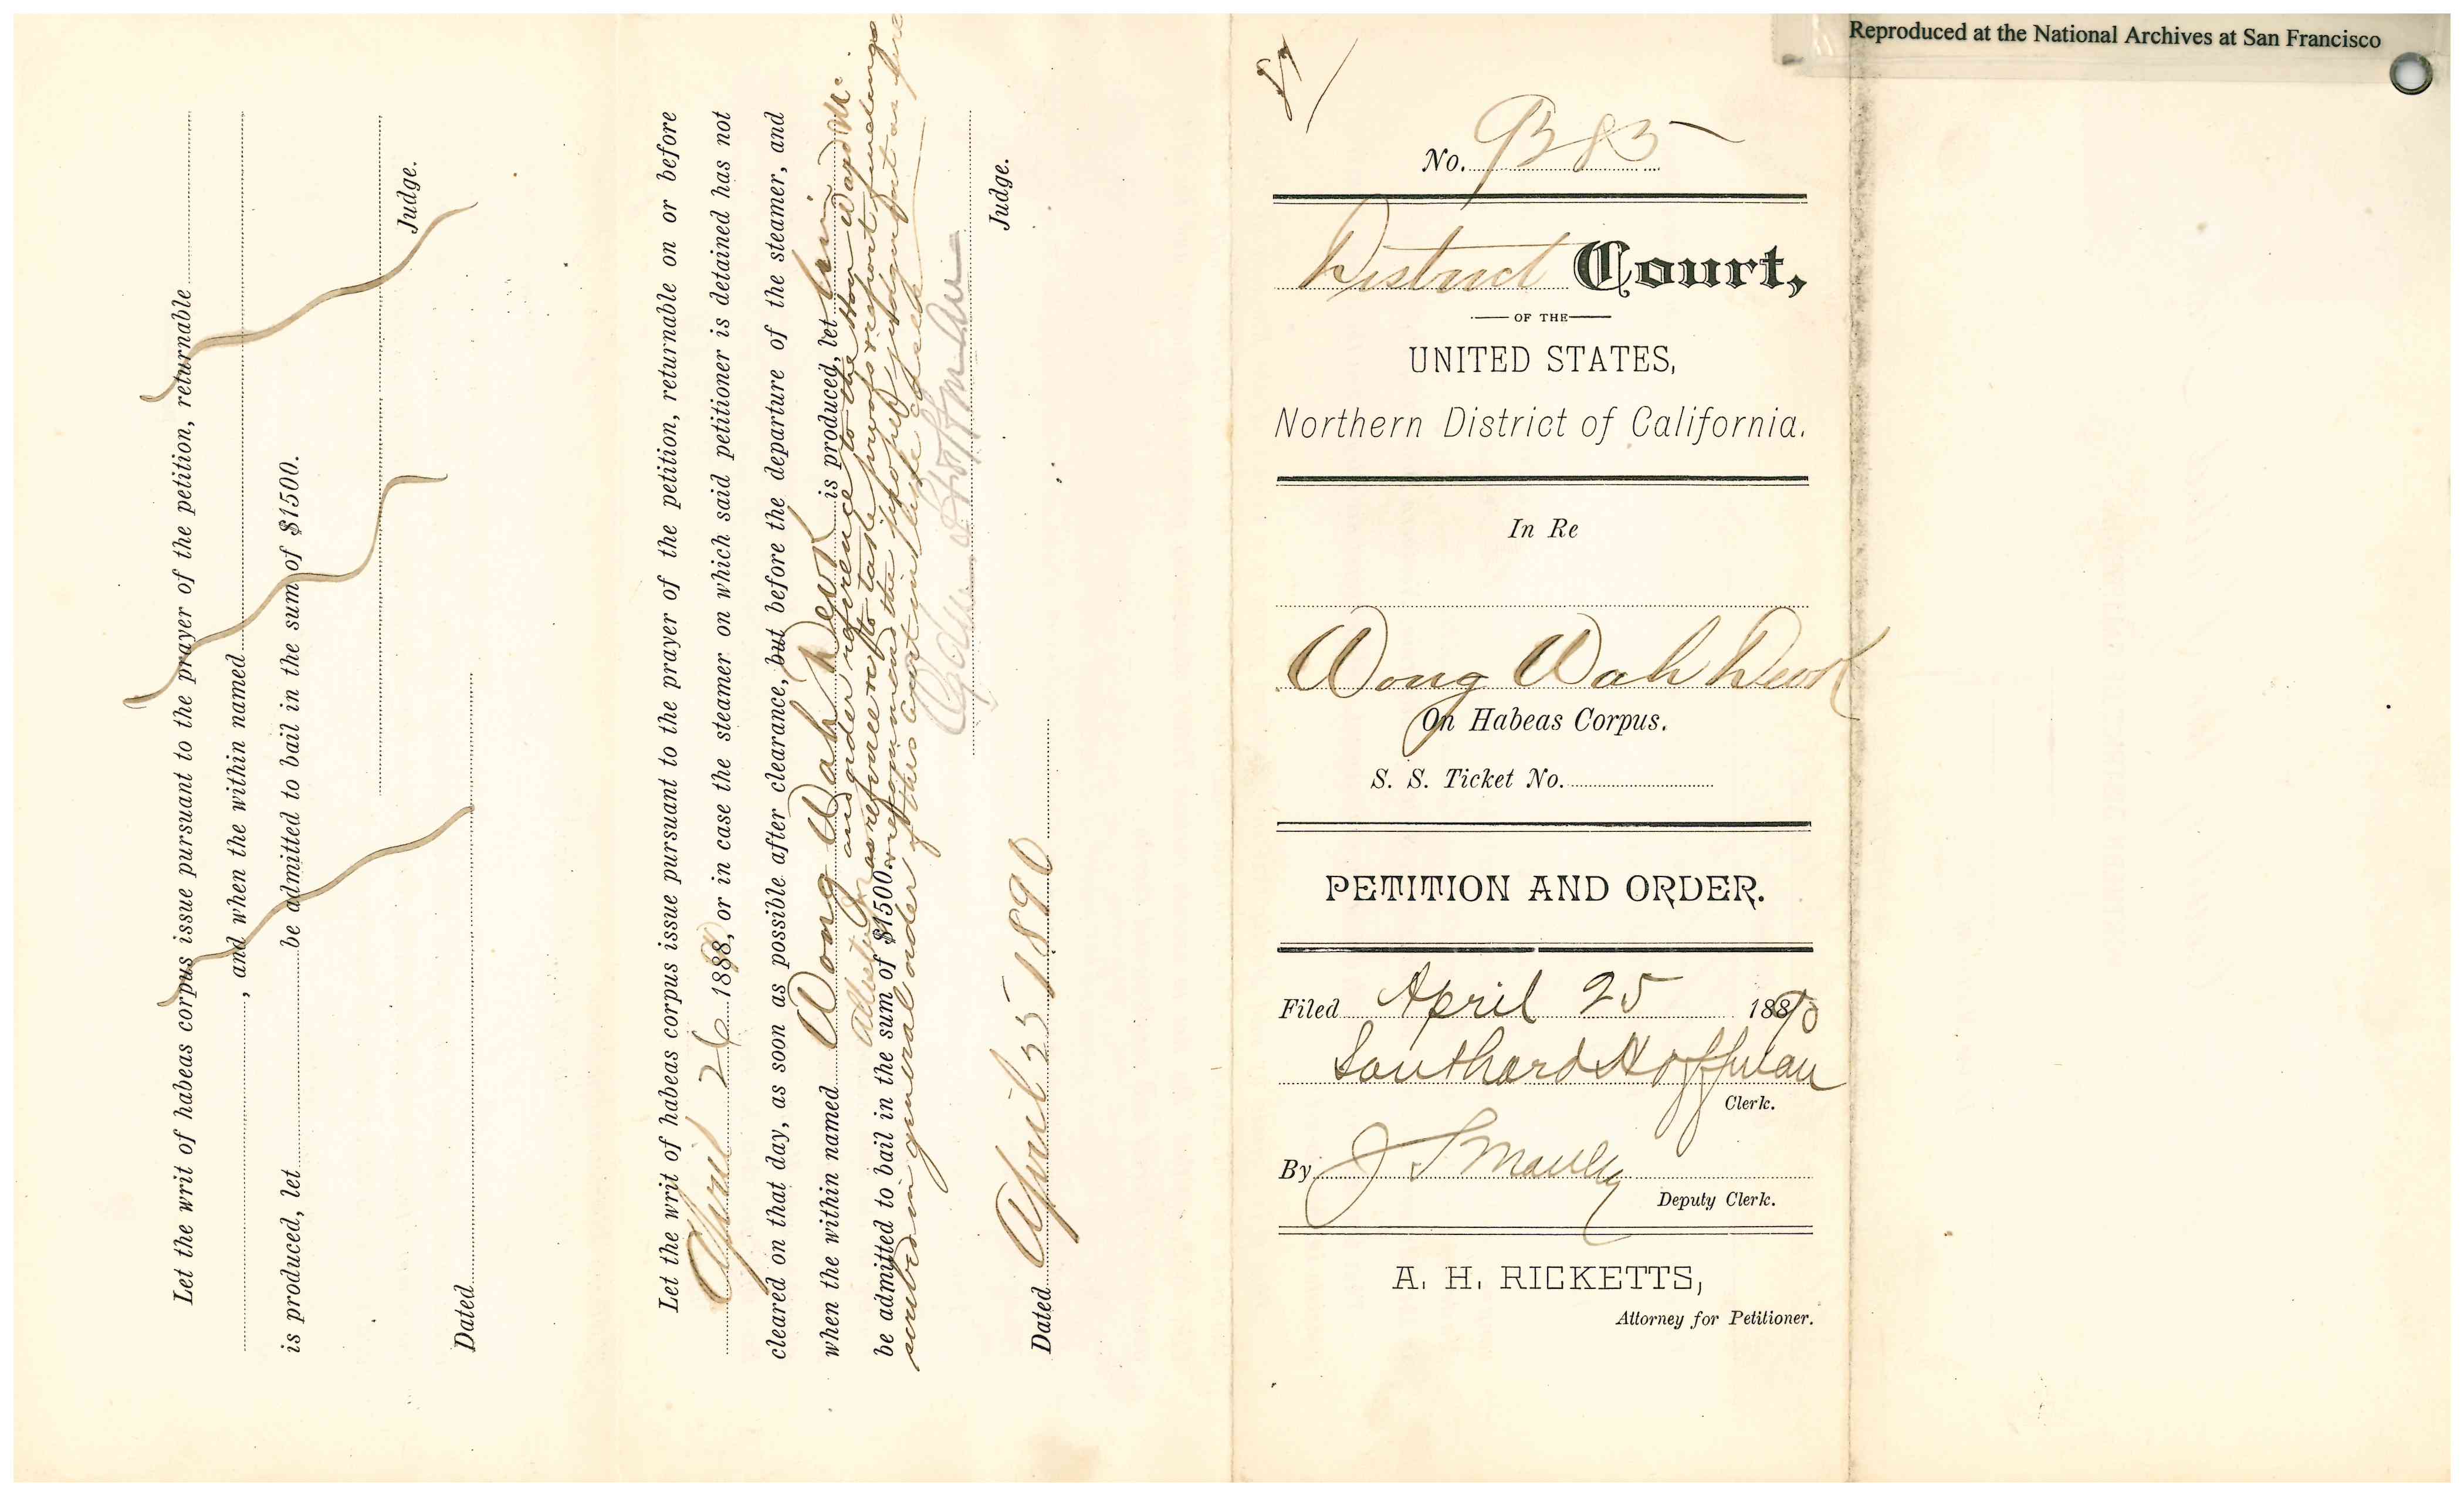 Reproduced at the National Archives at San Francisco
Let the writ of habeas corpus issue pursuant to the prayer of the petition, returnable
, and when the within named
is produced, let be admitted to bail in the sum of $1500.
Judge.
Dated
Let the writ of habeas corpus issue pursuant to the prayer of the petition, returnable on or before
April 26 1890, or in case the steamer on which said petitioner is detained has not
cleared on that day, as soon as possible after clearance, but before the departure of the steamer, and
when the within named Wong Wah is produced, let him
and under reference to the Hon Ward Mc
as referee to take proofs report findings
be admitted to bail in the sum of $1500. recommend the judgment as pre
scribed in general order of this Court in like cases
Judge.
Dated April 25 1890
No. 9383
District Court,
OF THE
UNITED STATES,
Northern District of California.
In Re
Wong Wah
On Habeas Corpus.
S. S. Ticket No.
PETITION AND ORDER.
Filed April 25 1890
Southard Hoffman
Clerk.
By
Deputy Clerk.
A. H. RICKETTS,
Attorney for Petitioner.